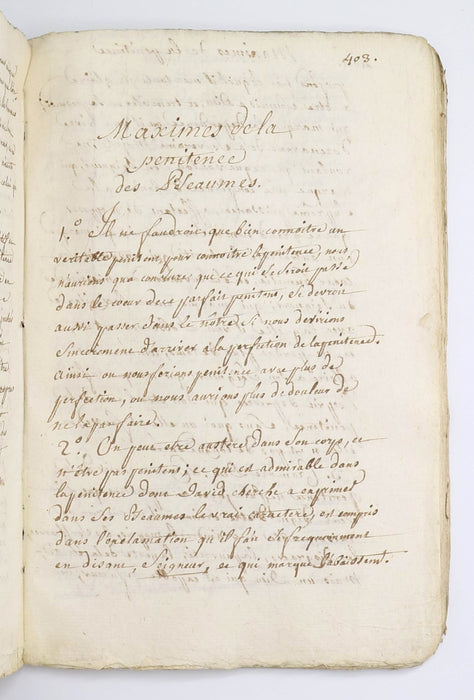 403.
Maximes de la
penitence
des Pseaumes.
1.° Il ne faudroit que bien connoitre un
veritable penitent pour connoitre la penitence, nous
naurions qua conclure que ce qui se seroit passé
dans le coeur de ce parfait penitent, se devroit
aussi passer dans le notre si nous desirions
sincerement d'arriver a la perfection de la penitence.
Ainsi ou nous ferions penitence avec plus de
perfection, ou nous aurions plus de douleur de
ne la pas faire.
2.° On peut etre austere dans son corps, et
n'être pas penitent; ce qui est admirable dans
la penitence dont David cherche a exprimer
dans ses Pseaumes le vrai caractere, est compris
dans l'exclamation qu'il fait si frequemment
en disant, Seigneur, ce qui marque l'abaissem.t